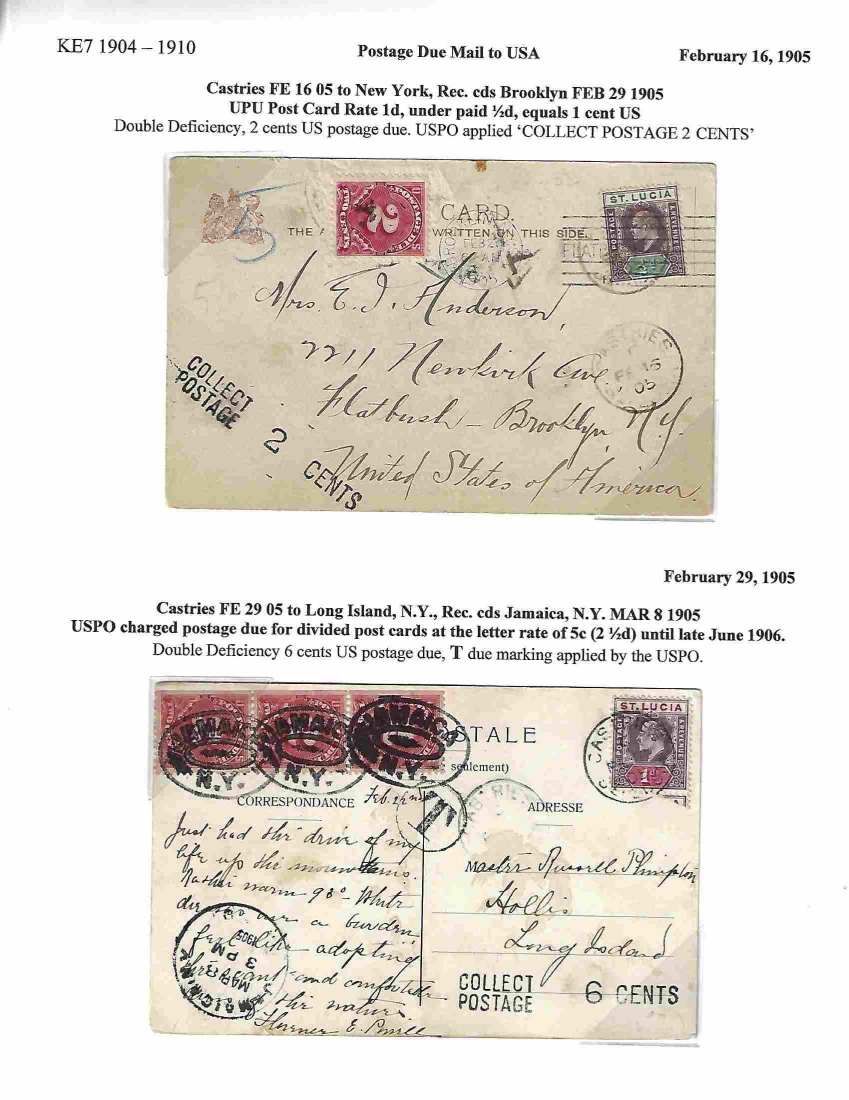 KE7 1904 – 1910
Postage Due Mail to USA
February 16, 1905
Castries FE 16 05 to New York, Rec. cds Brooklyn FEB 29 1905
UPU Post Card Rate 1d, under paid ½d, equals 1 cent US
Double Deficiency, 2 cents US postage due. USPO applied ‘COLLECT POSTAGE 2 CENTS’
5
2
CARD.
ST. LUCIA
POSTAGE & REVENUE
THE A
WRITTEN ON THIS SIDE.
FLAT
T
Mrs. E. J. Anderson,
2211 Newkirk Ave
CASTRIES
FE 16
05
Flatbush – Brooklyn, N.Y.
United States of America.
COLLECT
POSTAGE
2
CENTS
February 29, 1905
Castries FE 29 05 to Long Island, N.Y., Rec. cds Jamaica, N.Y. MAR 8 1905
USPO charged postage due for divided post cards at the letter rate of 5c (2 ½d) until late June 1906.
Double Deficiency 6 cents US postage due, T due marking applied by the USPO.
JAMAICA N.Y.
JAMAICA N.Y.
JAMAICA N.Y.
STALE
seulement)
ST. LUCIA
POSTAGE & REVENUE
1d
CORRESPONDANCE
Feb. 22nd
T
ADRESSE
Just had the drive of my
life up the mountains.
Rather warm 98° White
a burden
feel like adopting
and comfortable
the natives
Florence E. Powell
MAR 8
3 PM
1905
Master Russell Plimpton
Hollis
Long Island
COLLECT
POSTAGE
6 CENTS